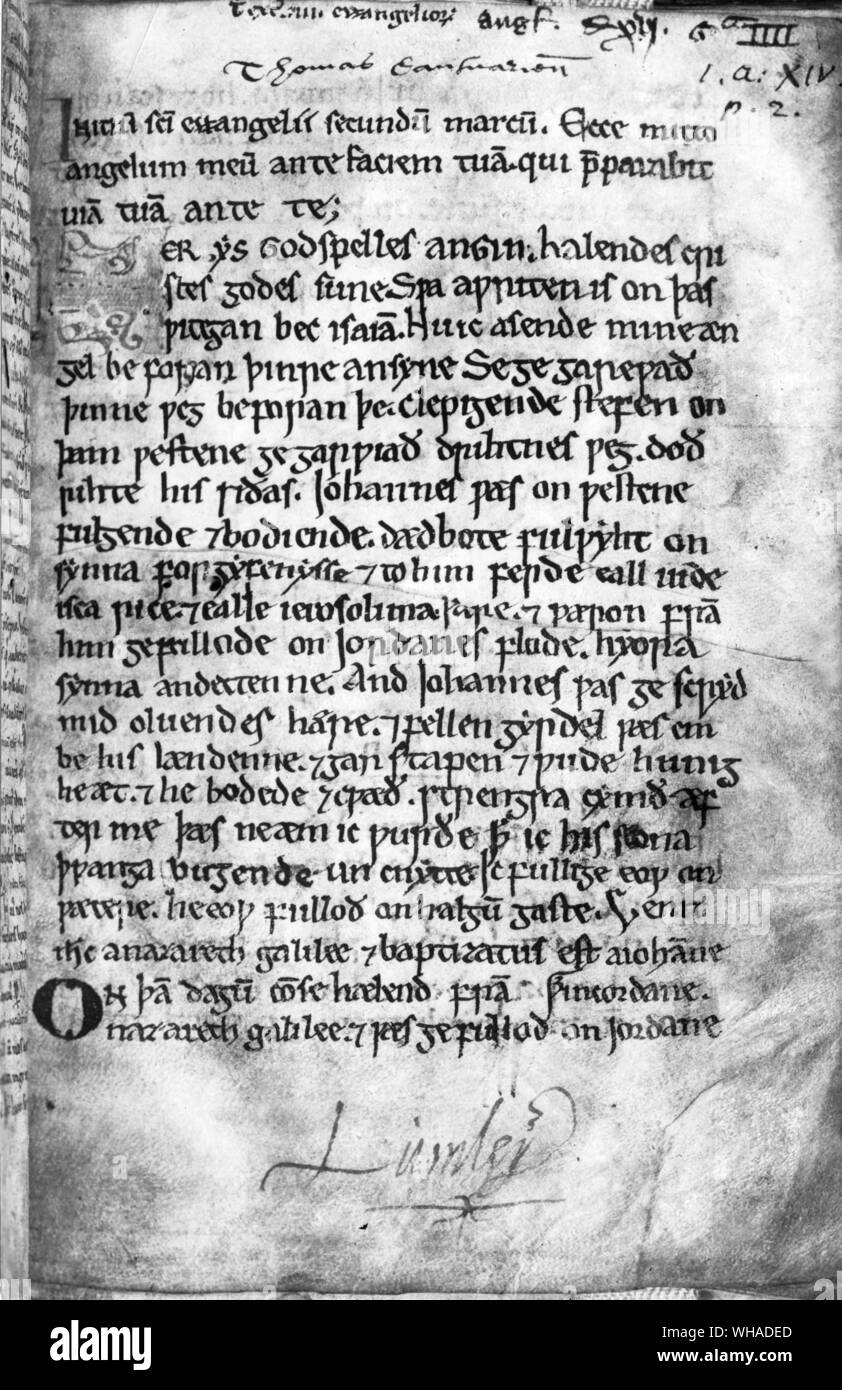 Text. iiii evangelior Angl.
Thomas Cantuarien̄
I. A. XIV
p. 2.
Initiū scī ewangelii secundū marcū. Ecce mitto
angelum meū ante faciem tuā. qui p̄parabit
uiā tuā ante te;
ER ẏs Godspelles angin. halendes cri
stes godes sune. Sƿa aƿriten is on þas
ƿitegan bec isaiā. Nu ic asende mine æn
gel beforan þinre ansyne Se gegareƿað
þinne ƿeg beforan þe. clepigende stefen on
þam ƿestene gegarƿiað drihtnes ƿeg. doð
rihte his siðas. Johannes ƿas on ƿestene
fulgende ⁊ bodiende. dædbote fulƿẏht on
sẏnna forgẏfenẏsse ⁊ to him ferde eall iude
isca rice. ⁊ ealle ierosolima ƿare. ⁊ ƿæron frā
him gefullode on Jordanes flode. hẏora
sẏnna andettenne. And Johannes ƿas gescrẏd
mid oluendes hære. ⁊ fellen gẏrdel ƿæs em
be his lændenne. ⁊ garstapen ⁊ ƿude hunig
he æt. ⁊ he bodede ⁊ cƿæð. strengra cẏmð æf
ter me þæs ne æm ic ƿurðe þ̄ ic his scona
þƿanga bugende un cnẏtte. Ic fullige eoƿ on
ƿætere. he eoƿ fullod on halgū gaste. Uenit
ihc anazareth galilee ⁊ baptizatus est a iohāne
On þā dagū cōm se hælend frā in iordane.
nazareth galilee. ⁊ ƿæs gefullod on Jordane
Lumley
alamy
alamy
Image ID: WHADED
www.alamy.com